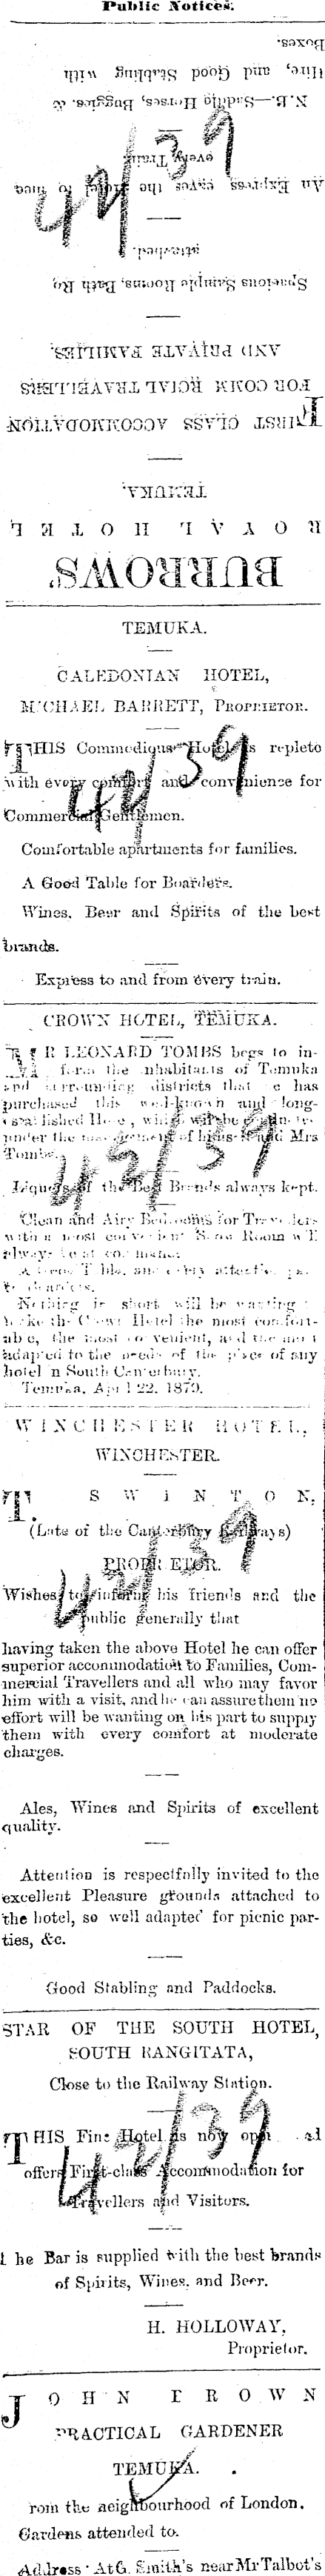 Public Notices.
BURROWS'
ROYAL HOTEL
TEMUKA.
FIRST CLASS ACCOMMODATION
FOR COMM RCIAL TRAVELLERS
AND PRIVATE FAMILIES.
Spacious Sample Rooms, Bath Ro
attached.
An Express eaves the Hotel to mee
every Train.
N.B.—Saddle Horses, Buggies. &
Hire, and Good Stabling with
Boxes.
42/39
TEMUKA.
CALEDONIAN HOTEL,
MICHAEL BARRETT, PROPRIETOR.
THIS Commodious Hotel is replete
with every comfort and convenience for
Commercial Gentlemen.
Comfortable apartments for families.
A Good Table for Boarders.
Wines, Beer and Spirits of the best
brands.
Express to and from every train.
42/39
CROWN HOTEL, TEMUKA.
MR LEONARD TOMBS begs to in-
form the inhabitants of Temuka
and surrounding districts that he has
purchased this well-known and long-
established House, which will be
under the management of himself and Mrs
Tombs.
Liquors of the Best Brands always kept.
Clean and Airy Bedrooms for Travellers
with a most convenient Show Room will
always be at command.
Nothing in short will be wanting
make the Crown Hotel the most comfort-
able, the most convenient, and the most
adapted to the needs of the place of any
hotel n South Canterbury.
Temuka, April 22, 1879.
42/39
WINCHESTER HOTEL,
WINCHESTER.
T. SWINTON,
(Late of the Canterbury Railways)
PROPRIETOR.
Wishes to inform his friends and the
public generally that
having taken the above Hotel he can offer
superior accommodation to Families, Com-
mercial Travellers and all who may favor
him with a visit, and he can assure them no
effort will be wanting on his part to supply
them with every comfort at moderate
charges.
Ales, Wines and Spirits of excellent
quality.
Attention is respectfully invited to the
excellent Pleasure grounds attached to
the hotel, so well adapted for picnic par-
ties, &c.
Good Stabling and Paddocks.
42/39
STAR OF THE SOUTH HOTEL,
SOUTH RANGITATA,
Close to the Railway Station.
THIS Fine Hotel is now open and
offers First-class Accommodation for
Travellers and Visitors.
The Bar is supplied with the best brands
of Spirits, Wines, and Beer.
H. HOLLOWAY,
Proprietor.
42/39
JOHN BROWN
PRACTICAL GARDENER
TEMUKA.
rom the neighbourhood of London.
Gardens attended to.
Address: At G. Smith's near Mr Talbot's